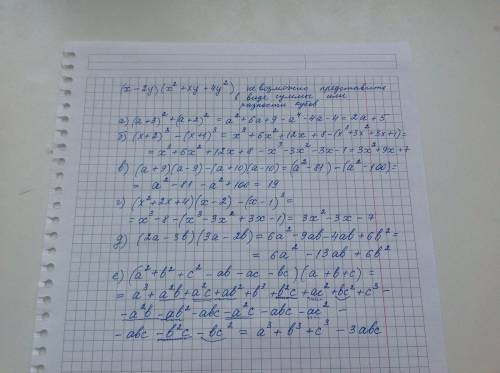 (x-2y)(x²+xy+4y²) невозможно представить
в виде суммы или
разности кубов
а) (a+3)²+(a+2)² = a²+6a+9-a⁴-4a-4 = 2a+5
б) (x+2)³-(x+1)³ = x³+6x²+12x+8-(x³+3x²+3x+1)=
= x³+6x²+12x+8-x³-3x²-3x-1=3x²+9x+7
в) (a+9)(a-9)-(a+10)(a-10)=(a²-81)-(a²-100)=
= a²-81-a²+100=19
г) (x²+2x+4)(x-2)-(x-1)³=
= x³-8-(x³-3x²+3x-1)= 3x²-3x-7
д) (2a-3b)(3a-2b)=6a²-9ab-4ab+6b²=
= 6a²-13ab+6b²
е) (a²+b²+c²-ab-ac-bc)(a+b+c)=
= a³+a²b+a²c+ab²+b³+b²c+ac²+bc²+c³-
-a²b-ab²-abc-a²c-abc-ac²-
-abc-b²c-bc² = a³+b³+c³-3abc